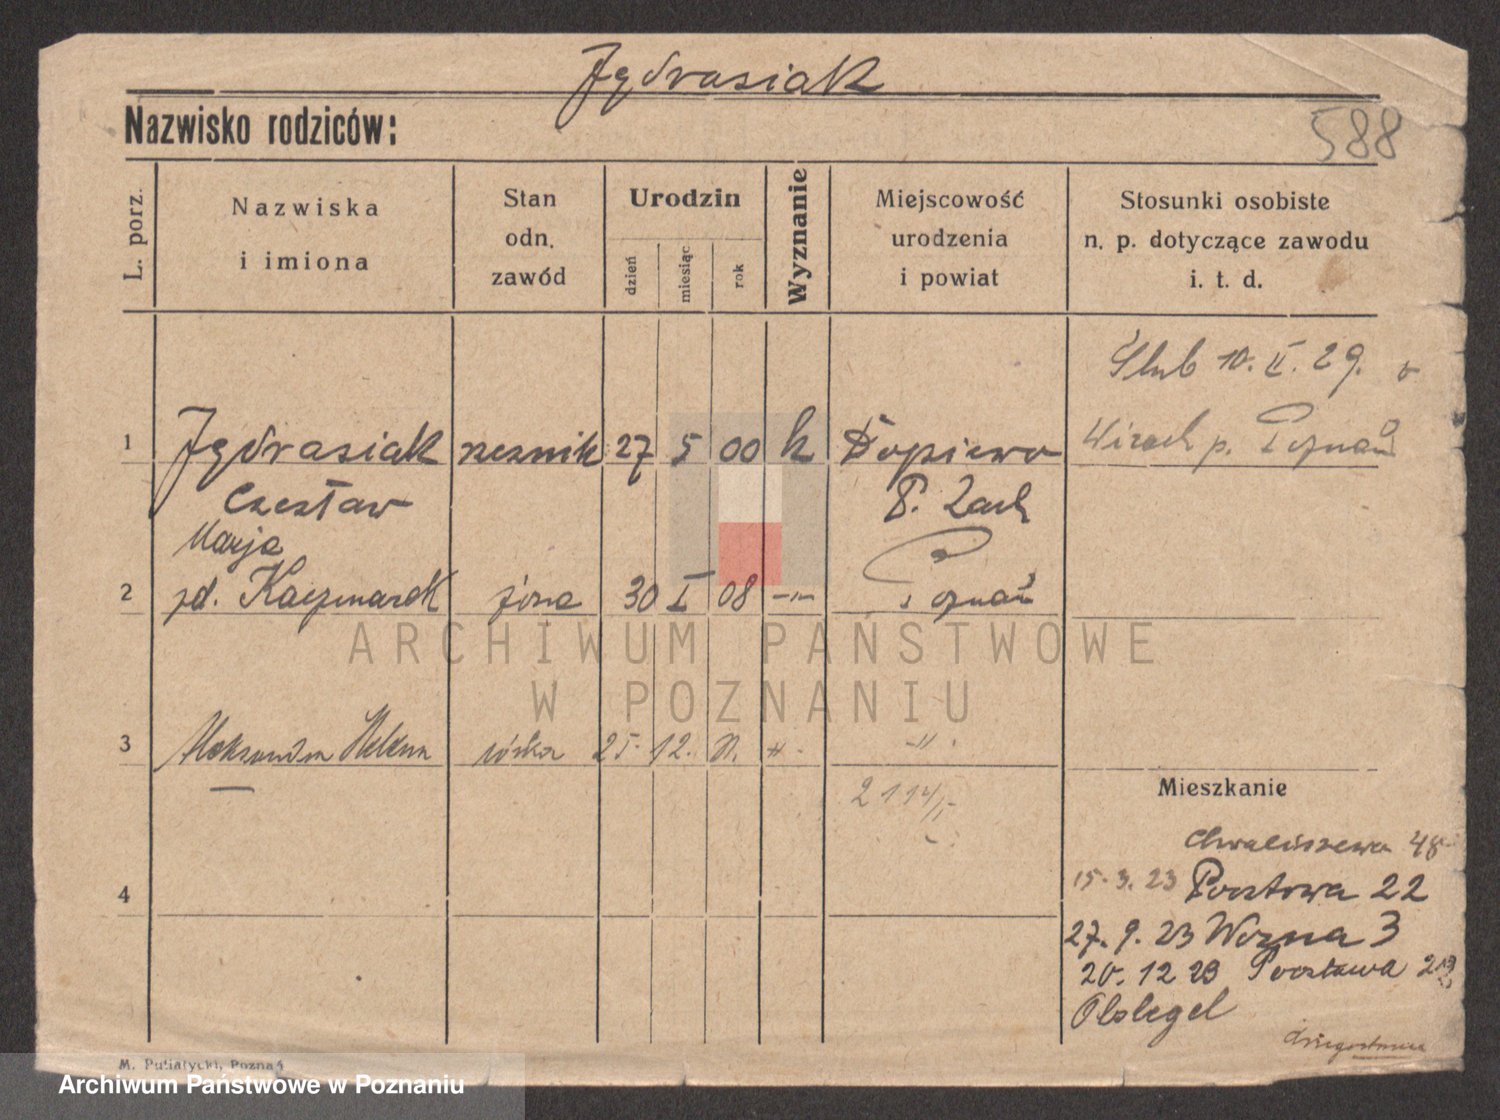 Jędrasiak
Nazwisko rodziców:
588
L. porz.
Nazwiska
i imiona
Stan
odn.
zawód
Urodzin
dzień
miesiąc
rok
Wyznanie
Miejscowość
urodzenia
i powiat
Stosunki osobiste
n. p. dotyczące zawodu
i. t. d.
Ślub 10. II. 29. v
1 Jędrasiak rzeźnik 27 5 00 k Dopiewo
Wirach p. Poznań
Czesław P. Zach
Marja
2 zd. Kaczmarek żona 30 I 08 -"- Poznań
ARCHIWUM PAŃSTWOWE
W POZNANIU
3 Aleksandra Helena córka 25. 12. -"-
Mieszkanie
2114/
Chwaliszewo 48
15. 3. 23 Pocztowa 22
4
27. 9. 23 Wozna 3
20. 12 23 Pocztowa
M. Putiatycki, Poznań
Archiwum Państwowe w Poznaniu